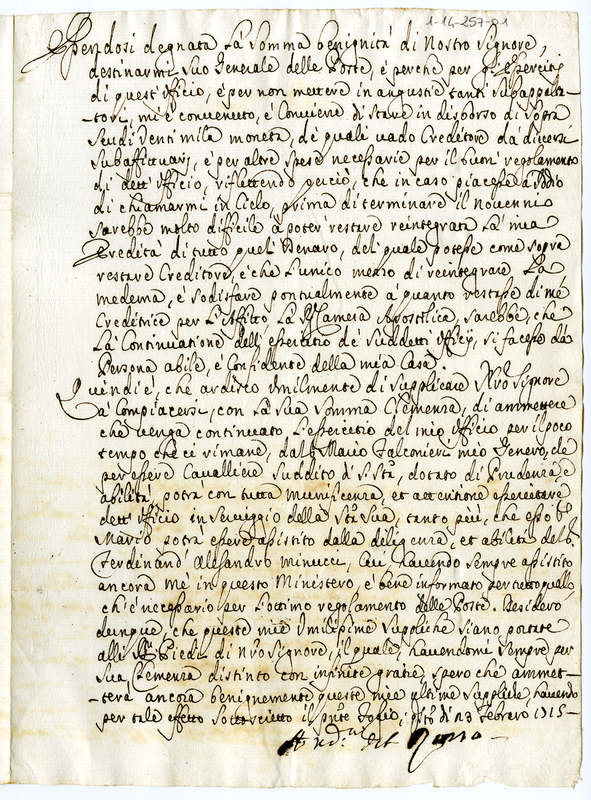 1-14-257-21
Essendosi degnata la somma benignità di Nostro Signore,
destinarmi suo Generale delle Poste, e perche per gl'esercitij
di quest'Officio, e per non mettere in angustie tanti subappalta-
tori, mi è convenuto, e conviene di stare in disborso di sopra
scudi venti mila moneta, de quali vado Creditore da diversi
subaffittuarij, e per altre spese necessarie per il buon regolamento
di dett'Officio, riflettendo perciò, che in caso piacesse a Iddio
di chiamarmi in Cielo, prima di terminare il novennio
sarebbe molto difficile à poter restare reintegrata la mia
Eredità di tutto quel Denaro, del quale potesse come sopra
restare Creditore, e che l'unico mezzo di reintegrare la
medema, e sodisfare pontualmente à quanto restasse di me
Creditrice per l'Affitto la Camera Apostolica, sarebbe, che
la Continuatione dell'esercitio de suddetti Officij, si facesse da
Persona abile, e Confidente della mia Casa.
Quindi è, che ardisco umilmente di supplicare N'ro Signore
à Compiacersi, con la sua somma Clemenza, di ammettere
che venga continuato l'essercitio del mio Officio per il poco
tempo che ci rimane, dal Mario Falconieri mio Genero, che
per essere Cavalliere suddito di S. Stà, dotato di Prudenza, e
abilità, potrà con tutta munificenza, et attentione esercitare
dett'Officio in servigio della Stà Sua, tanto più, che esso
Marco sotrà essere assistito dalla diligenza, et abilità del
Ferdinand' Alesandro Minucci, Cui havendo sempre assistito
ancora me in questo Ministero, e bene informato per tutto quello
ch'è necessario per l'ottimo regolamento delle Poste. Desidero
dunque, che queste mie umilissime suppliche siano portate
alli Piedi di N'ro Signore, il quale, havendomi sempre per
sua Clemenza distinto con infinite gratie, spero che ammet-
terà ancora benignemente queste mie ultime suppliche, havendo
per tale effetto sottoscritto il pnte foglio, q'sto dì 23 Febraro 1715-
And. del Rosso